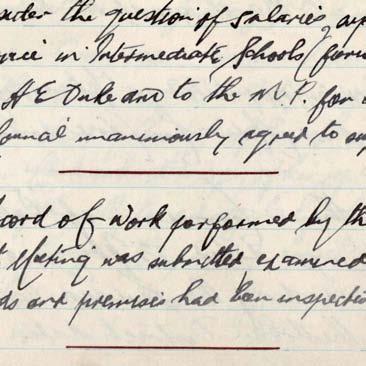 sider the question of salaries, ap
vice in Intermediate Schools (forw
A E Duke and to the M.P. for
ouncil unanimously agreed to sup
cord of work performed by th
t Meeting was submitted, examined
ds and premises had been inspecti